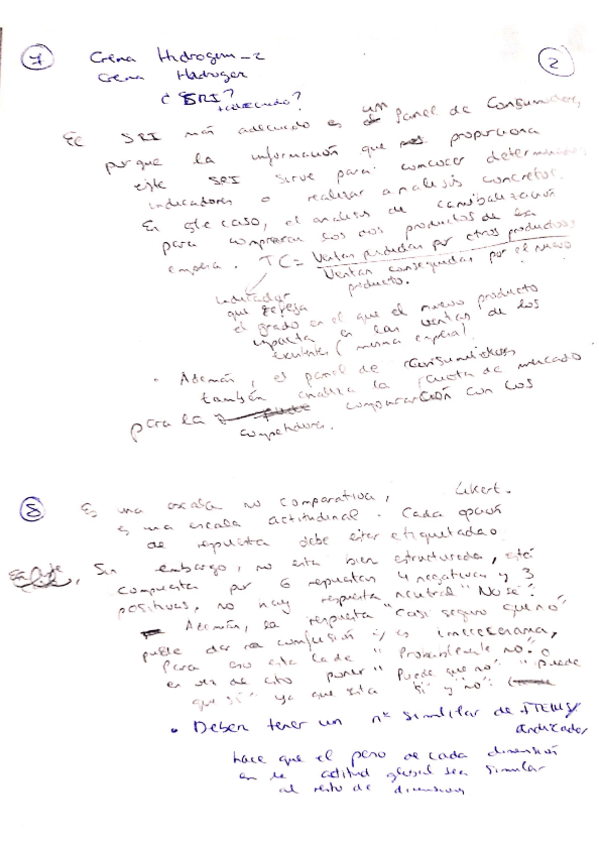 7 Crema Hidrogem-2 2
Crema Hadrogen
¿ SRI? + adecuado?
El SRI más adecuado es un Panel de Consumidores,
porque la información que proporciona
este SRI sirve para concocer determinados
indicadores o realizar analisis concretos.
En este caso, el análisis de canibalización
para comparar los dos productos de la
empresa. TC = Ventas perdidas por otros productos
Ventas conseguidas por el nuevo
producto.
indicador
que refleja
el grado en el que el nuevo producto
impacta en las ventas de los
(misma empresa)
• Además, el panel de consumidores
también analiza la cuota de mercado
para la comparación con los
competidores.
8 Es una escala no comparativa, Likert.
Es una escala actitudinal. Cada opción
de respuesta debe estar etiquetada
Sin embargo, no está bien estructurada, está
compuesta por 6 repuestas 4 negativas y 3
positivas, no hay respuesta neutral "No sé".
Además, la respuesta "Casi seguro que no"
puede dar confusión y es innecesaria,
Para eso está la de "Probablemente no".
en vez de esto poner "Puede que no" "Puede
que sí" ya que está "sí" y "no".
• Deben tener un nº similar de ITEMS/
indicador
hace que el peso de cada dimensión
en la actitud global sea similar
al resto de dimension